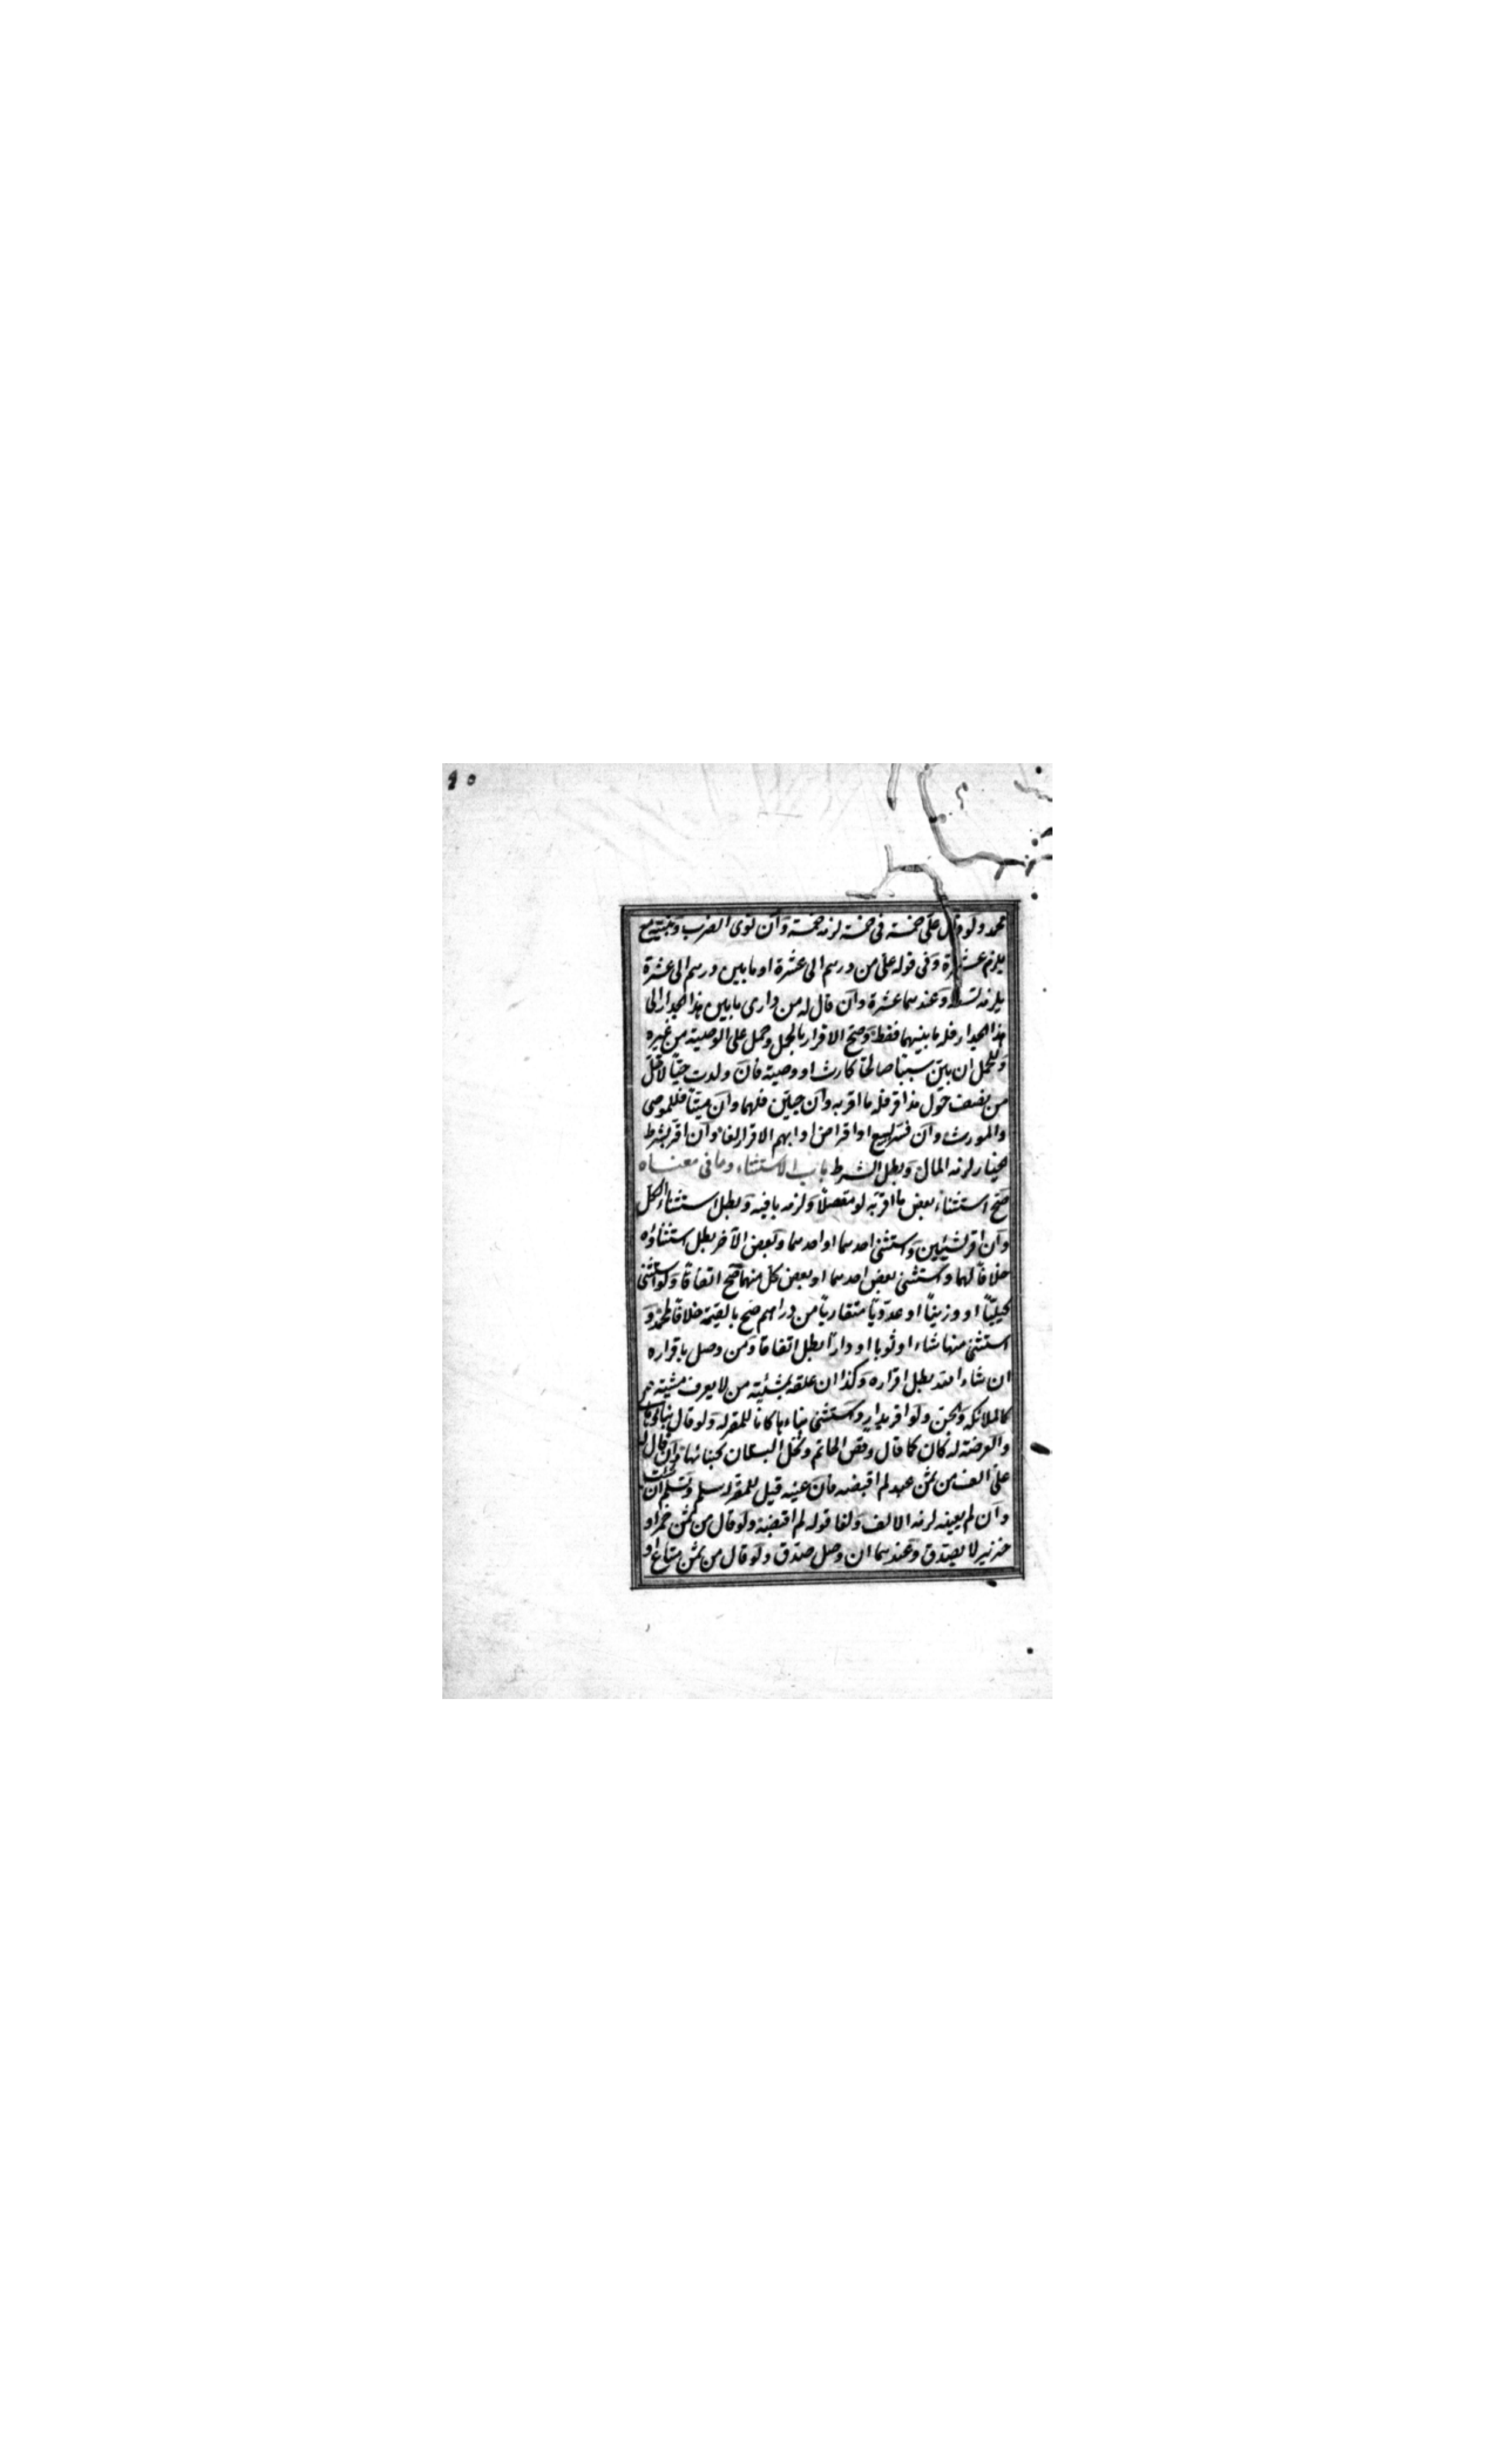 ٩٥
محمد ولو قال علىّ خمسة فى خمسة لزمه خمسة وان نوى الضرب وبنية مع
يلزم عشرة وفى قوله علىّ من درهم الى عشرة او ما بين درهم الى عشرة
يلزمه تسعة وعندهما عشرة وان قال له من دارى ما بين هذا الجدار الى
هذا الجدار فله ما بينهما فقط وصح الاقرار بالحمل وحمل على الوصية من غيره
وللحمل ان بيّن سببًا صالحًا كارث او وصية فان ولدت حيًّا لاقلّ
من نصف حول مذ اقر فله ما اقر به وان حيّين فلهما وان ميتًا فللموصى
والمورث وان فسّر ببيع او اقراض او ابهم الاقرار لغا وان اقرّ بشرط
الخيار لزمه المال وبطل الشرط باب الاستثناء وما فى معناه
صحّ استثناء بعض ما اقرّ به لو متصلًا ولزمه باقيه وبطل استثناء الكلّ
وان اقر بشيئين واستثنى احدهما او احدهما وبعض الآخر بطل استثناؤه
خلافًا لهما واستثنى بعض احدهما او بعض كلّ منهما صحّ اتفاقًا ولو استثنى
كيليًّا او وزنيًّا او عدديًّا متقاربًا من دراهم صحّ بالقيمة خلافًا لمحمّد و
استثنى منها شاء او ثوبا او دارًا بطل اتفاقا ومن وصل باقراره
ان شاء الله بطل اقراره وكذا ان علقه بمشيئة من لا يعرف مشيته
كالملائكة والجن ولو اقر بدار واستثنى بناءها كانا للمقر له ولو قال بناؤها
والعرصة له كان كما قال وفص الخاتم ونخل البستان كبنائها وان قال له
علىّ الف من ثمن عبد لم اقبضه فان عينه قيل للمقر له سلم وتسلم ان شئت
وان لم يعينه لزمه الالف ولغا قوله لم اقبضه ولو قال من ثمن خمر او
خنزير لا يصدق وعندهما ان وصل صدق ولو قال من ثمن متاع او